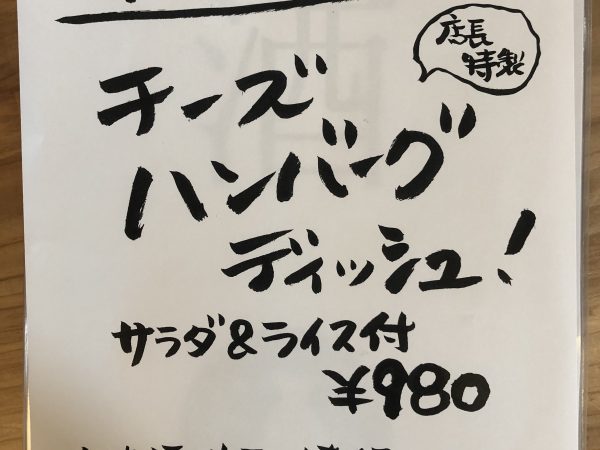 店長
特製
チーズ
ハンバーグ
ディッシュ!
サラダ&ライス付
¥980